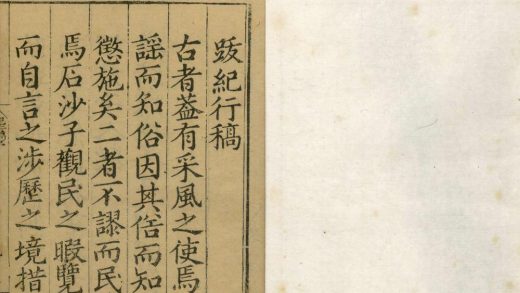 跋紀行稿
古者葢有采風之使焉
謡而知俗因其俗而知
懲施矣二者不謬而民
焉石沙子觀民之暇覽
而自言之涉歷之境措